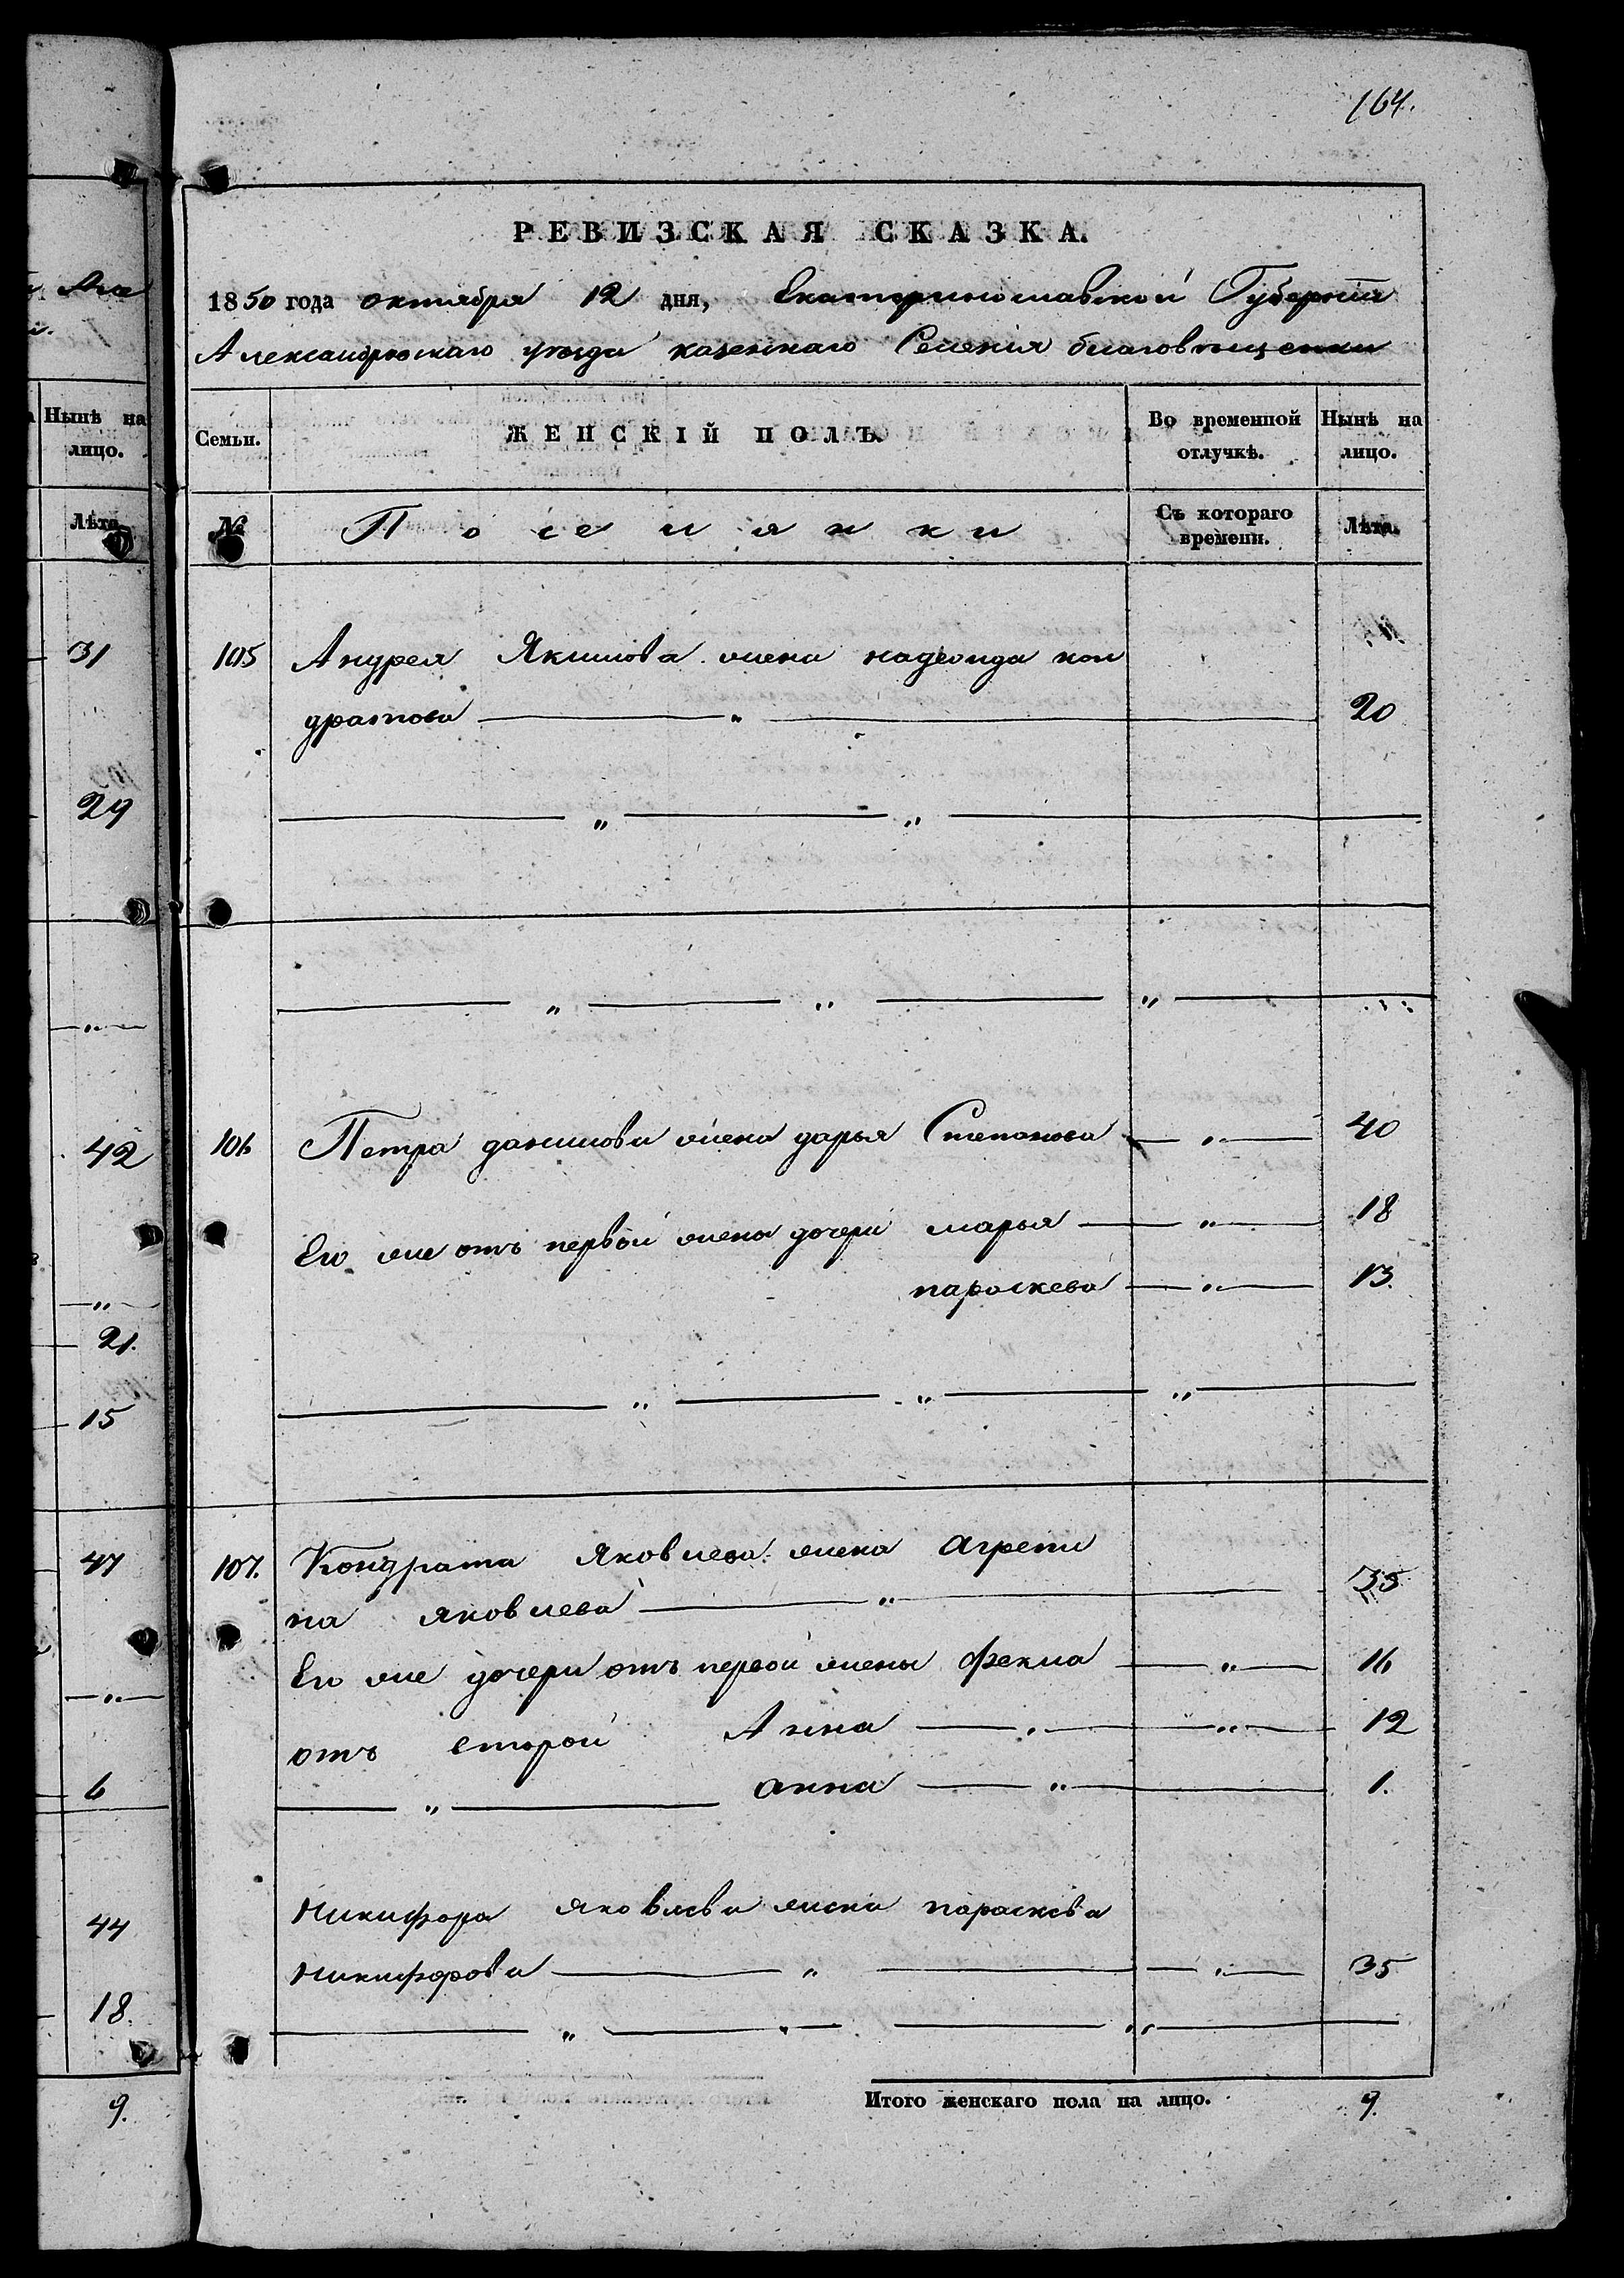 164.
РЕВИЗСКАЯ СКАЗКА.
1850 года октября 12 дня, Екатеринославской Губернии
Александровскаго уезда казеннаго Селения благовещенки
Нынѣ на лицо.
Семьи.
ЖЕНСКІЙ ПОЛЪ.
Во временной отлучкѣ.
Нынѣ на лицо.
Лѣта
№
Поселянки
Съ котораго времени.
Лѣта.
31
29
42
21.
15
47
6
44
18.
9.
105 Андрея Якимова жена надежда кон
дратова 20
106 Петра данилова жена дарья Степанова 40
Его же отъ первой жены дочери марья 18
параскева 13.
107. Кондрата Яковлева жена Агрепи
на яковлева 35
Его же дочери отъ первой жены Фекла 16
отъ второй Анна 12
анна 1.
Никифора яковлева жена параскева
Никифорова 35
Итого женскаго пола на лицо. 9.